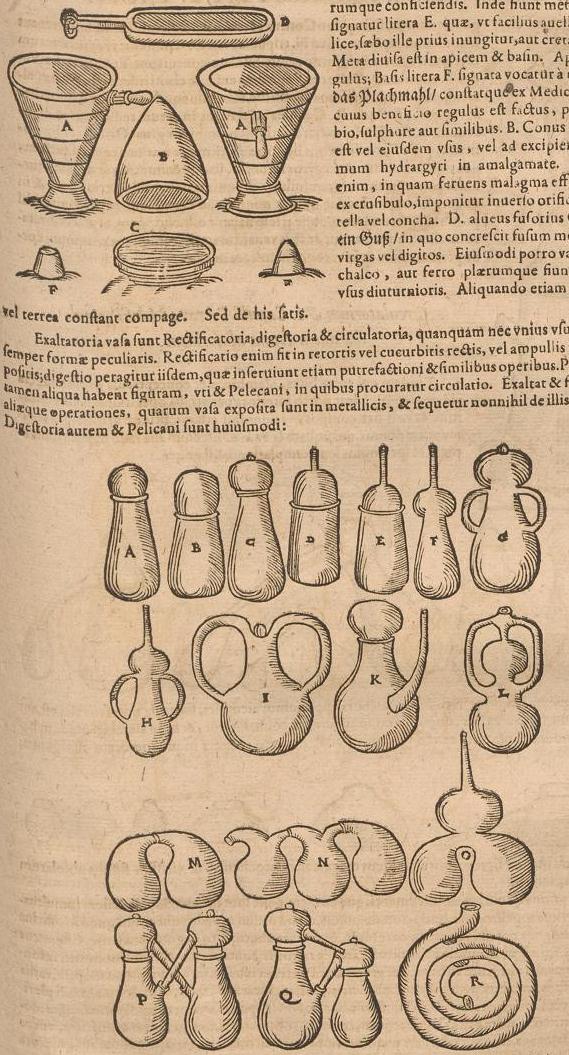 rumque conficiendis. Inde fiunt met
ſignatur litera E. quæ, vt facilius auell
lice, ſæbo ille prius inungitur, aut cret
Meta diuiſa eſt in apicem & baſin. Ap
gulus; Baſis litera F. ſignata vocatur à
das Plachmahl/ conſtatque ex Medic
cuius beneficio regulus eſt factus, p
bio, ſulphure aut ſimilibus. B. Conus
eſt vel eiuſdem vſus, vel ad excipien
mum hydrargyri in amalgamate.
enim, in quam feruens malagma eff
ex cruſibulo, imponitur inuerſo orific
tella vel concha. D. alueus fuſorius
ein Guß/ in quo concreſcit fuſum me
virgas vel digitos. Eiuſmodi porro va
chalco, aut ferro plærumque fiun
vſus diuturnioris. Aliquando etiam
D
A
B
A
C
F
F
vel terrea conſtant compage. Sed de his ſatis.
Exaltatoria vaſa ſunt Rectificatoria, digeſtoria & circulatoria, quanquam nec vnius vſu
ſemper formæ peculiaris. Rectificatio enim fit in retortis vel cucurbitis rectis, vel ampullis
poſitis; digeſtio peragitur iiſdem, quæ inſeruiunt etiam putrefactioni & ſimilibus operibus. P
tamen aliqua habent figuram, vti & Pelecani, in quibus procuratur circulatio. Exaltat & f
aliæque operationes, quarum vaſa expoſita ſunt in metallicis, & ſequetur nonnihil de illis
Digeſtoria autem & Pelicani ſunt huiuſmodi:
A B C D E F G
H I K L
M N O
P Q R